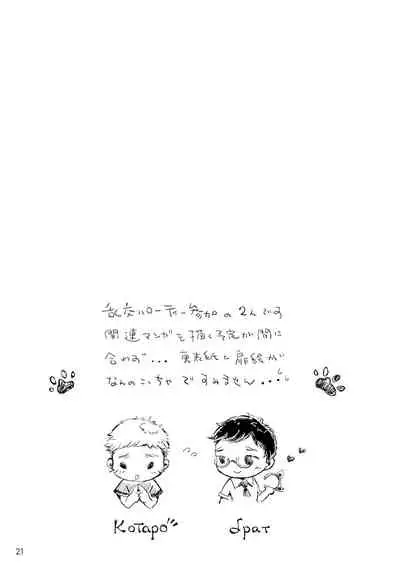 乱交パーティー参加の2人です
関連マンガを描く予定が間に
合わず... 裏表紙と扉絵が
なんのこっちゃですみません...
Kotaro
brat
21